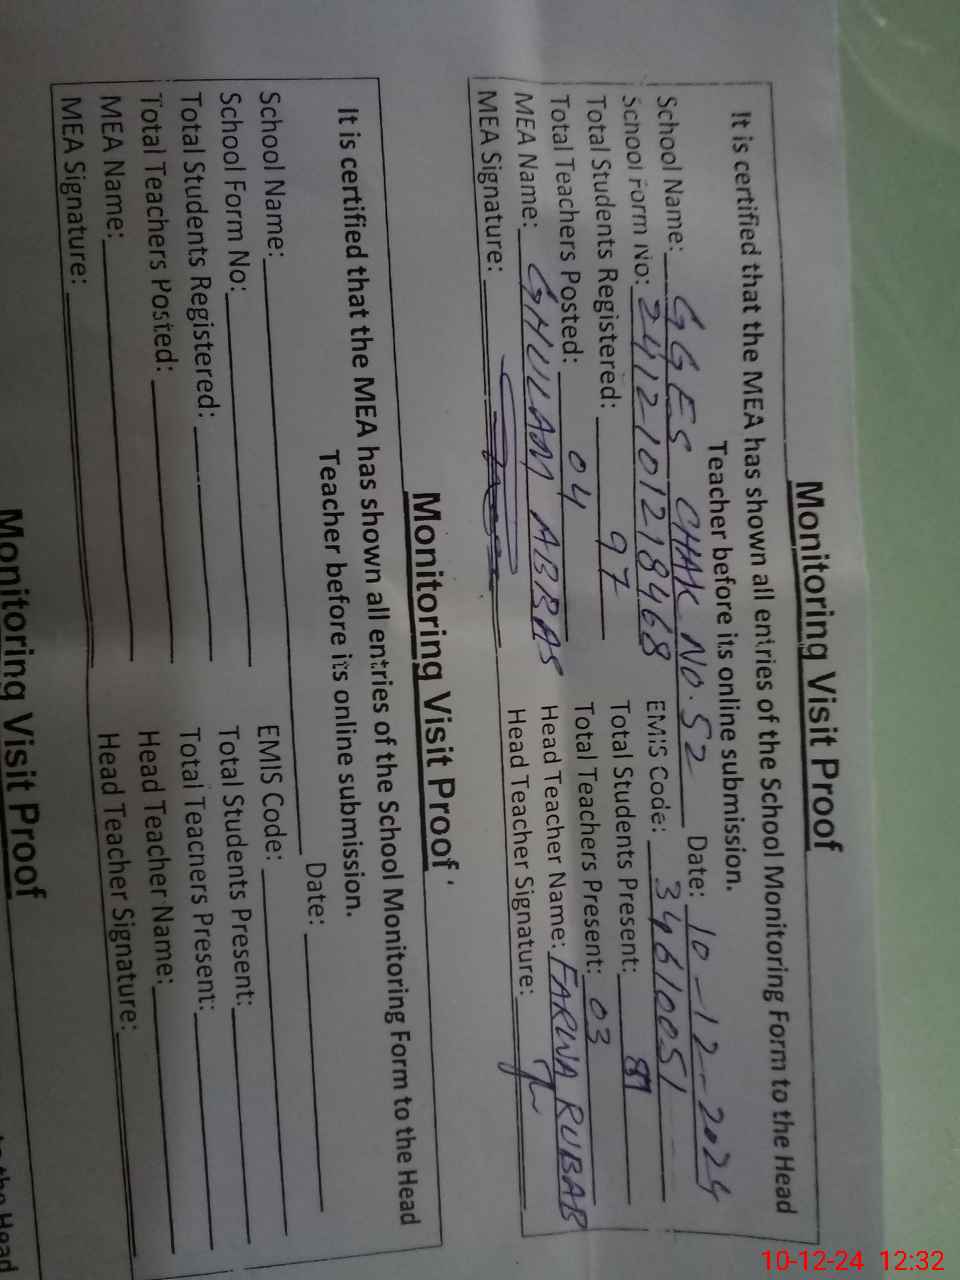 Monitoring Visit Proof
It is certified that the MEA has shown all entries of the School Monitoring Form to the Head
Teacher before its online submission.
School Name: GGES CHAK NO. 52 Date: 10-12-2024
School Form No: 2412101218468 EMIS Code: 34610051
Total Students Registered: 97 Total Students Present:
Total Teachers Posted: 04 Total Teachers Present: 03
MEA Name: GHULAM ABBAS Head Teacher Name: FARWA RUBAB
MEA Signature: Head Teacher Signature:
Monitoring Visit Proof
It is certified that the MEA has shown all entries of the School Monitoring Form to the Head
Teacher before its online submission.
School Name: Date:
School Form No: EMIS Code:
Total Students Registered: Total Students Present:
Total Teachers Posted: Total Teachers Present:
MEA Name: Head Teacher Name:
MEA Signature: Head Teacher Signature:
Monitoring Visit Proof
the Head
10-12-24 12:32